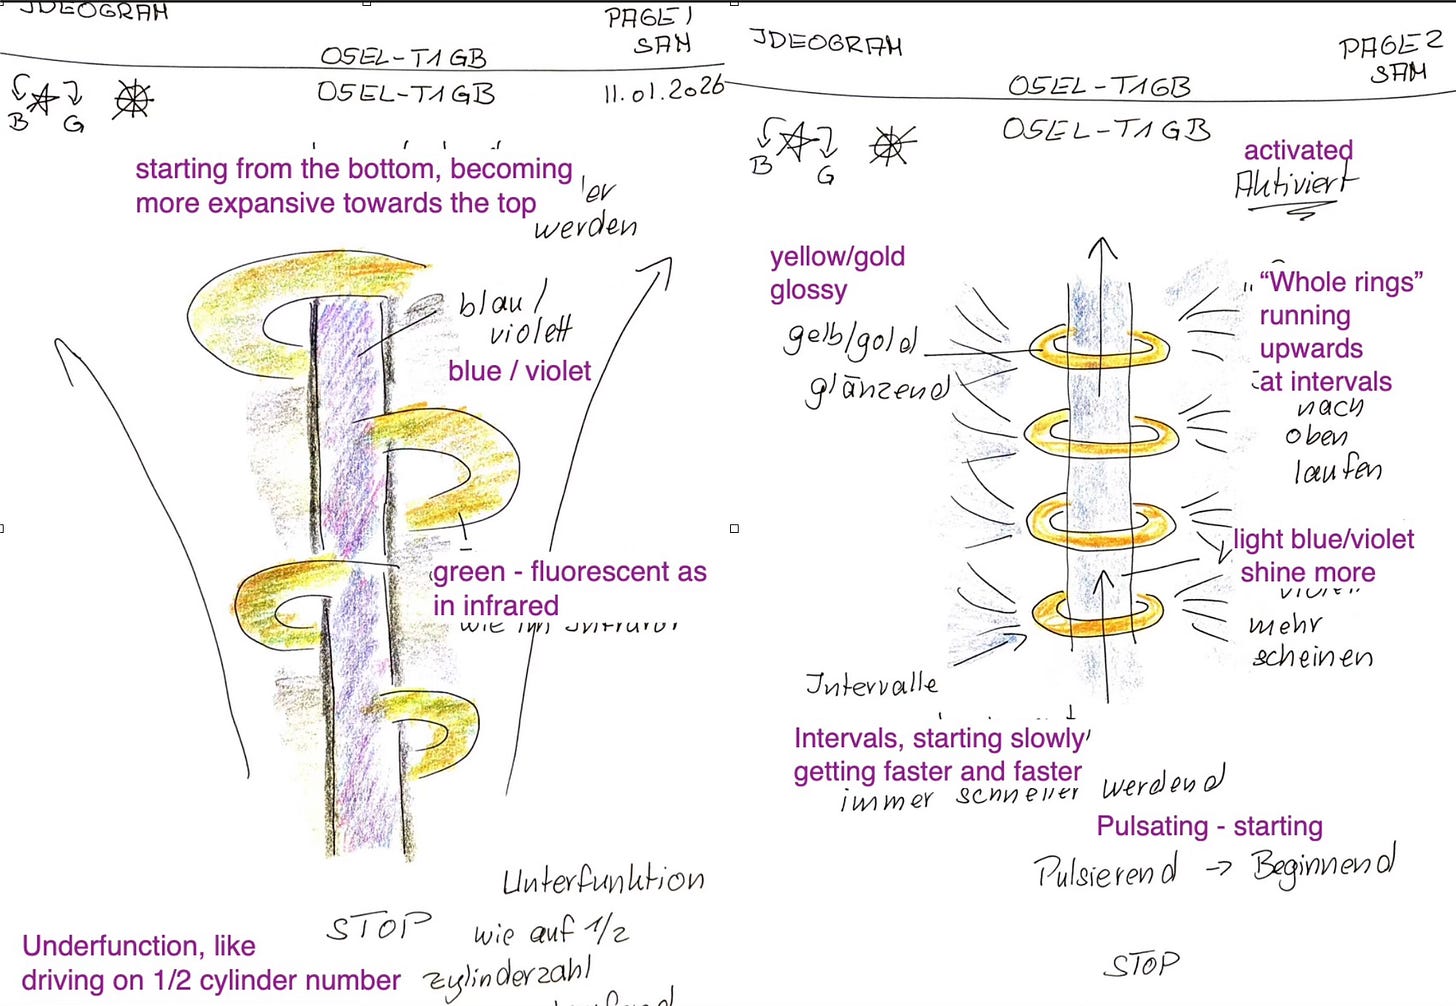 JDEOGRAM
PAGE 1
SAM
O5EL-T1GB
O5EL-T1GB
11.01.2026
B
G
starting from the bottom, becoming
more expansive towards the top
werden
blau /
violett
blue / violet
green - fluorescent as
in infrared
Unterfunktion
STOP
wie auf 1/2
zylinderzahl
Underfunction, like
driving on 1/2 cylinder number
JDEOGRAM
PAGE 2
SAM
O5EL-T1GB
O5EL-T1GB
B
G
activated
Aktiviert
yellow/gold
glossy
gelb/gold
glänzend
“Whole rings”
running
upwards
at intervals
nach
oben
laufen
light blue/violet
shine more
mehr
scheinen
Intervalle
Intervals, starting slowly
getting faster and faster
immer schneller werdend
Pulsating - starting
Pulsierend → Beginnend
STOP